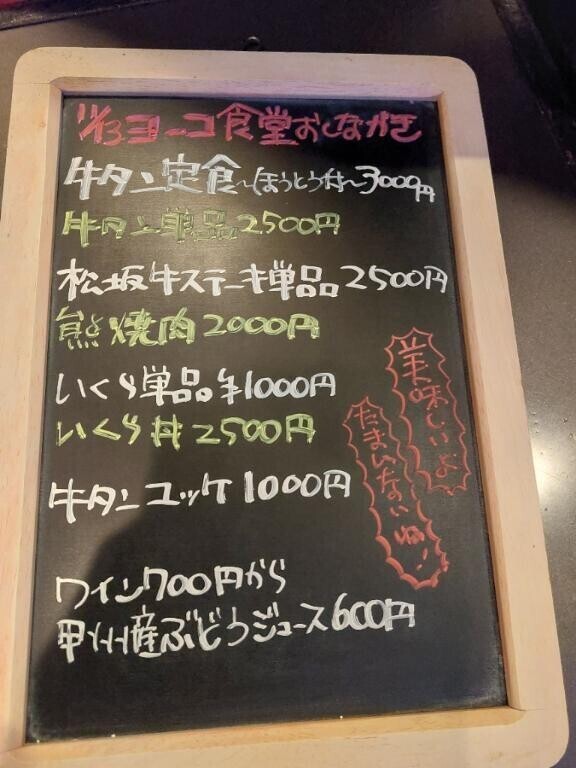 11/13 ヨーコ食堂おしながき
牛タン定食〜ほうとう付〜3000円
牛タン単品2500円
松坂牛ステーキ単品2500円
熊焼肉2000円
いくら単品¥1000円
いくら丼2500円
牛タンユッケ1000円
美味しいよ
たまんないね!
ワイン700円から
甲州産ぶどうジュース600円